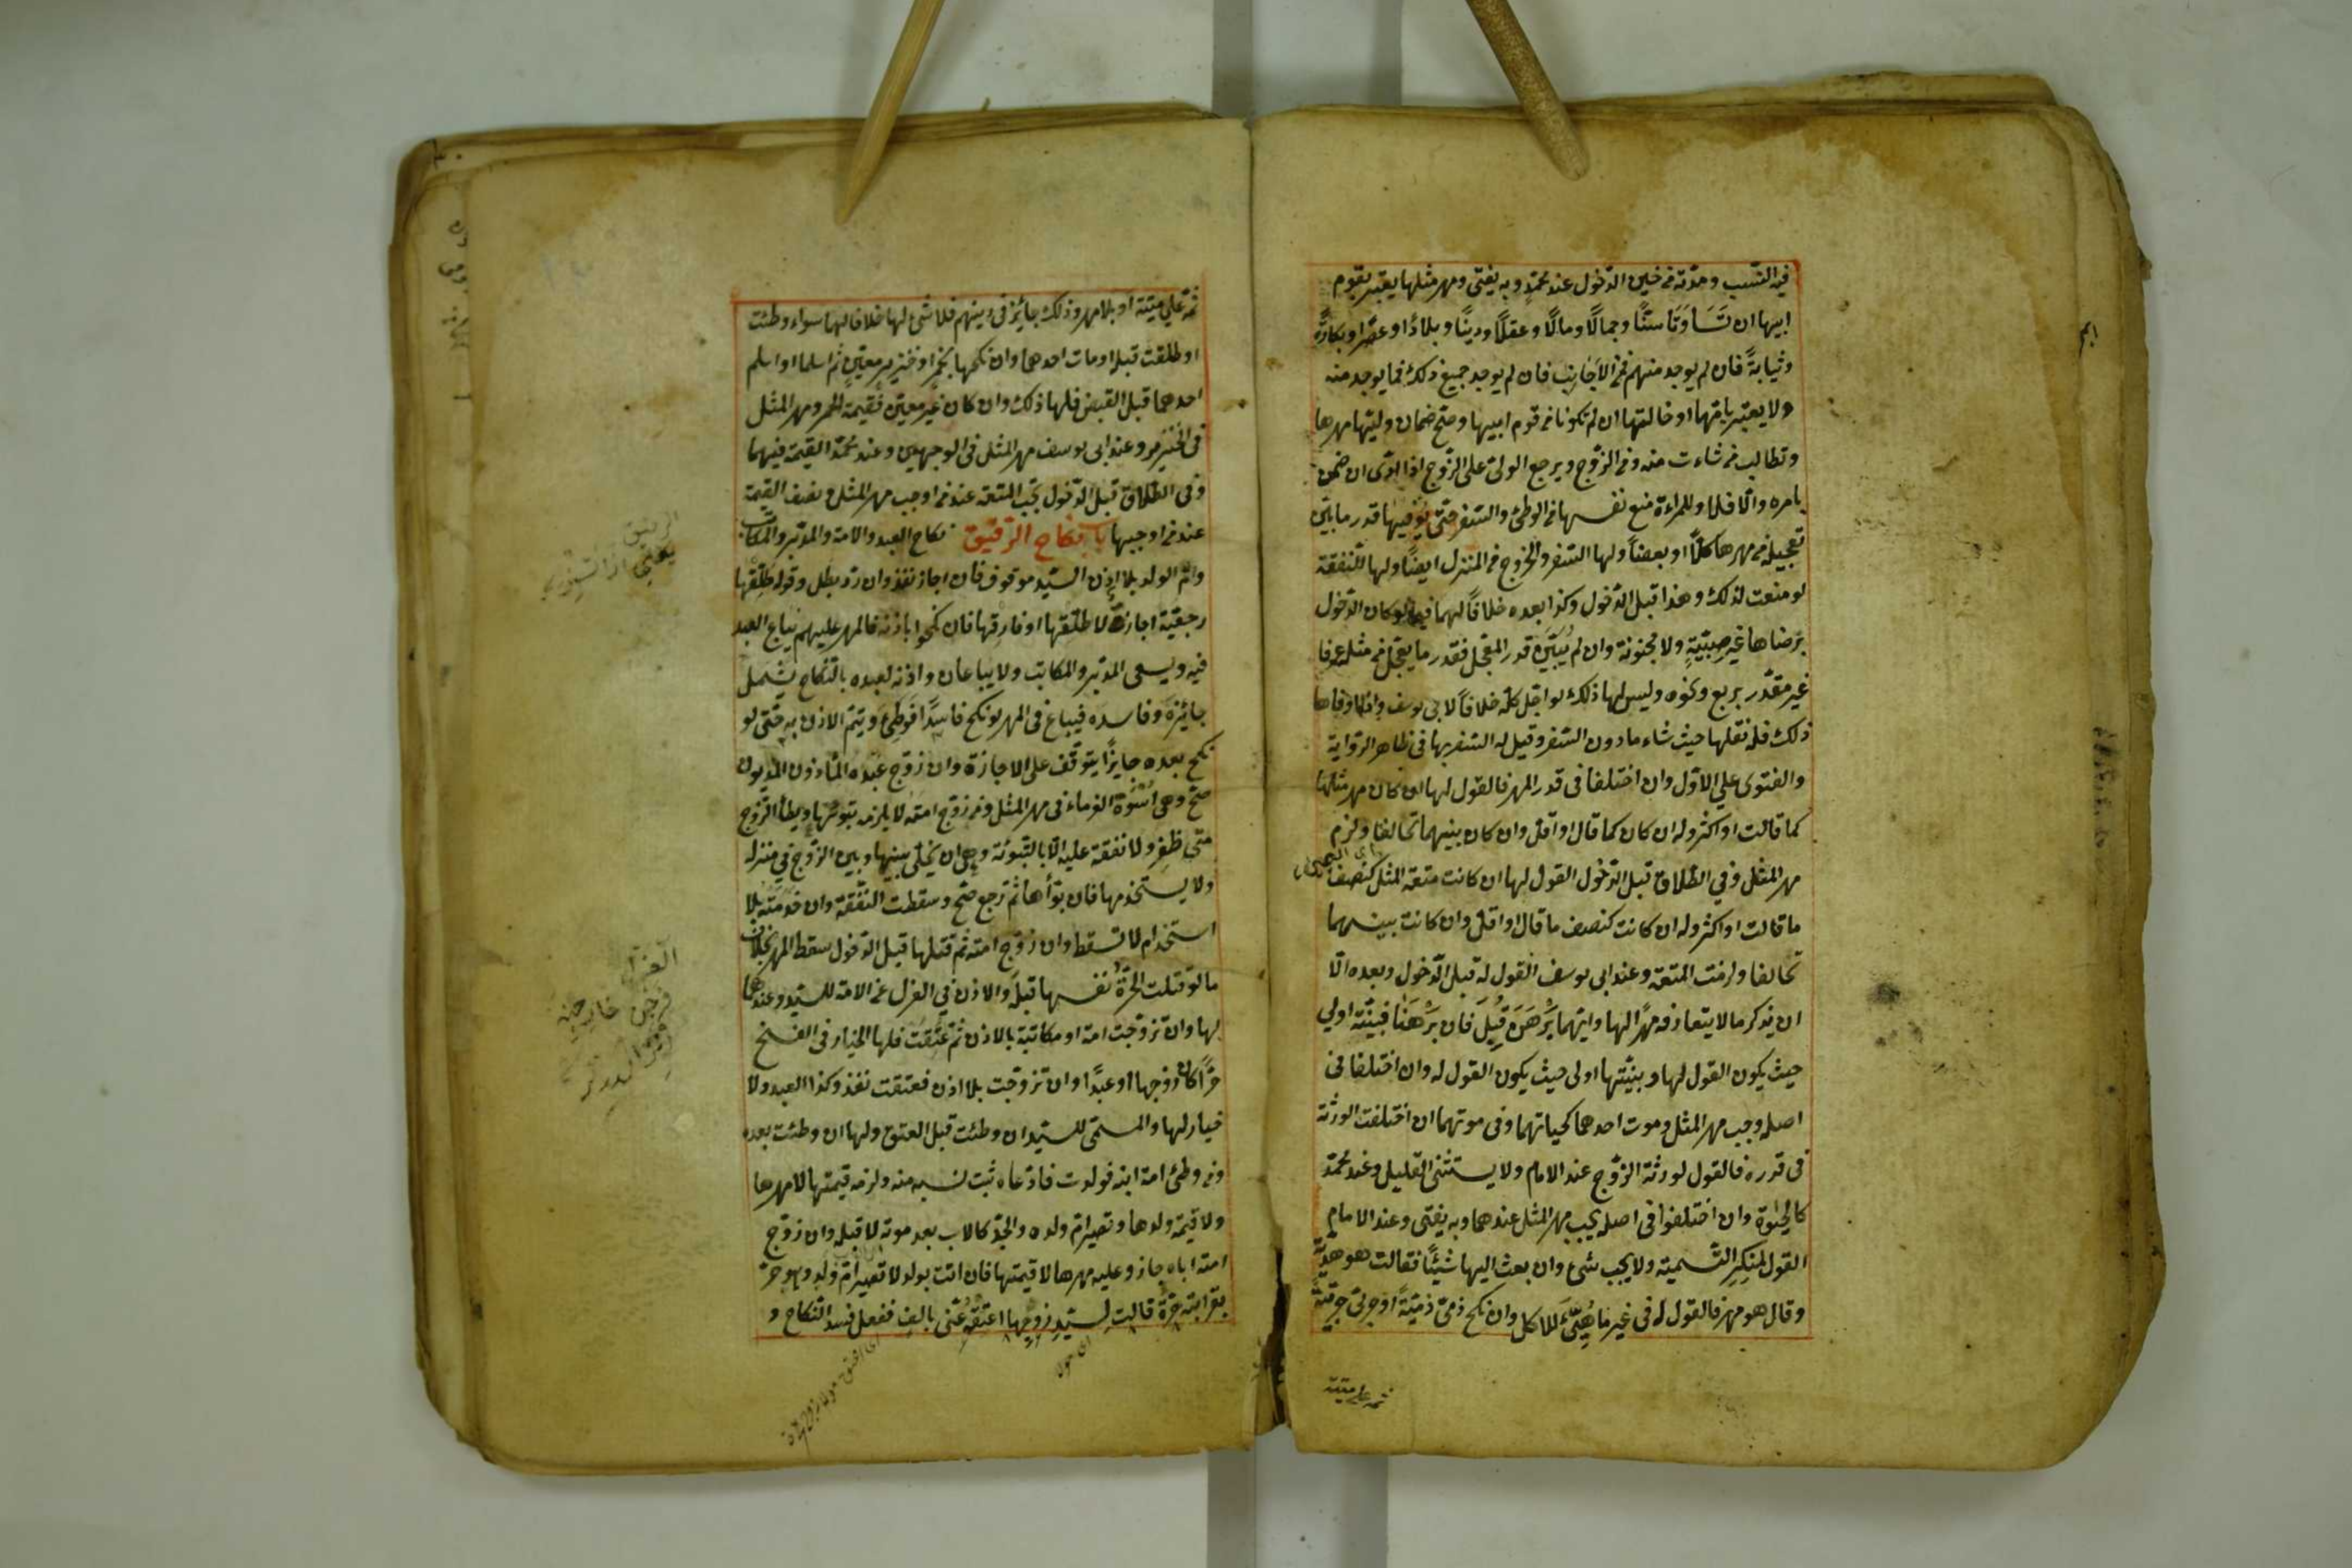 فيه النسب ومدته من حين الدخول عند محمد وبه يفتى ومهر مثلها يعتبر بقوم
ابيها ان تساوتا سنا وجمالا ومالا وعقلا ودينا وبلدا وعصرا وبكارة
وثيابة فان لم يوجد منهم فمن الاجانب فان لم يوجد جميع ذلك فما يوجد منه
ولا يعتبر بامها او خالتها ان لم تكونا من قوم ابيها وصح ضمان وليها مهرها
وتطالب من شاءت منه ومن الزوج ويرجع الولي على الزوج اذا ادى ان ضمن
بامره والا فلا وللمراة منع نفسها من الوطئ والسفر حتى يوفيها قدر ما بين
تعجيله من مهرها كلا او بعضا ولها السفر والخروج من المنزل ايضا ولها النفقة
لو منعت لذلك وهذا قبل الدخول وكذا بعده خلافا لهما فيما لو كان الدخول
برضاها غير صبية ولا مجنونة وان لم يبين قدر المعجل فقدر ما يعجل من مثله عرفا
غير مقدر بربع ونحوه وليس لها ذلك لو اجل كله خلافا لابي يوسف واذا اوفاها
ذلك فله نقلها حيث شاء ما دون السفر وقيل له السفر بها في ظاهر الرواية
والفتوى على الاول وان اختلفا في قدر المهر فالقول لها ان كان مهر مثلها
كما قالت او اكثر وله ان كان كما قال او اقل وان كان بينهما تحالفا ولزم
مهر المثل وفي الطلاق قبل الدخول القول لها ان كانت متعة المثل كنصف
ما قالت او اكثر وله ان كانت كنصف ما قال او اقل وان كانت بينهما
تحالفا ولزمت المتعة وعند ابي يوسف القول له قبل الدخول وبعده الا
ان يذكر ما لا يتعارف مهرا لها وايهما برهن قبل فان برهنا فبينته اولى
حيث يكون القول لها وبينتها اولى حيث يكون القول له وان اختلفا في
اصله وجب مهر المثل وموت احدهما كحياتهما وفي موتهما ان اختلفت الورثة
في قدره فالقول لورثة الزوج عند الامام ولا يستثنى القليل وعند محمد
كالحيوة وان اختلفوا في اصله يجب مهر المثل عندهما وبه يفتى وعند الامام
القول لمنكر التسمية ولا يجب شئ وان بعث اليها شيئا فقالت هو هدية
وقال هو مهر فالقول له في غير ما هيئ للاكل وان نكح ذمي ذمية او حربي حربية
ثمه على ميتة
ثمة على ميتة او بلا مهر وذلك جائز في دينهم فلا شئ لها خلافا لهما سواء وطئت
او طلقت قبله او مات احدهما وان نكحها بخمر او خنزير معين ثم اسلما او اسلم
احدهما قبل القبض فلها ذلك وان كان غير معين فقيمة الخمر ومهر المثل
في الخنزير وعند ابي يوسف مهر المثل في الوجهين وعند محمد القيمة فيهما
وفي الطلاق قبل الدخول تجب المتعة عند من اوجب مهر المثل ونصف القيمة
عند من اوجبها باب نكاح الرقيق نكاح العبد والامة والمدبر والمكاتب
وام الولد بلا اذن السيد موقوف فان اجاز نفذ وان رد بطل وقوله طلقها
رجعية اجازة لا طلقها او فارقها فان نكحوا باذنه فالمهر عليهم يباع العبد
فيه ويسعى المدبر والمكاتب ولا يباعان واذنه لعبده بالنكاح يشمل
جائزه وفاسده فيباع في المهر لو نكح فاسدا فوطئ ويتم الاذن به حتى لو
نكح بعده جايزا يتوقف على الاجازة وان زوج عبده المأذون المديون
صح وهي اسوة الغرماء في مهر المثل ومن زوج امته لا يلزمه تبوئتها ويطأ الزوج
متى ظفر ولا نفقة عليه الا بالتبوئة وهي ان يخلى بينها وبين الزوج في منزله
ولا يستخدمها فان بوأها ثم رجع صح وسقطت النفقة وان خدمته بلا
استخدام لا تسقط وان زوج امته ثم قتلها قبل الدخول سقط المهر بخلاف
ما لو قتلت الحرة نفسها قبله والاذن في العزل عن الامة للسيد وعندهما
لها وان تزوجت امة او مكاتبة بالاذن ثم عتقت فلها الخيار في الفسخ
حرا كان زوجها او عبدا وان تزوجت بلا اذن فعتقت نفذ وكذا العبد ولا
خيار لها والمسمى للسيد ان وطئت قبل العتق ولها ان وطئت بعده
ومن وطئ امة ابنه فولدت فادعاه ثبت نسبه منه ولزمه قيمتها لا مهرها
ولا قيمة ولدها وتصير ام ولده والجد كالاب بعد موته لا قبله وان زوج
امته اباه جاز وعليه مهرها لا قيمتها فان اتت بولد لا تصير ام ولد وهو حر
بقرابته حرة قالت لسيد زوجها اعتقه عني بالف ففعل فسد النكاح و